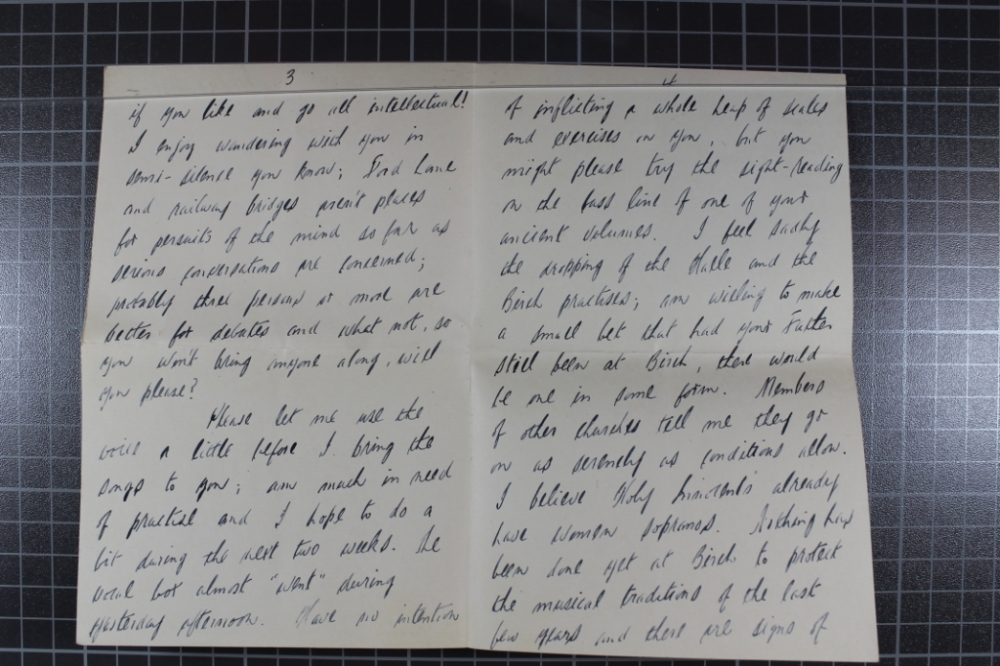 3
if you like and go all intellectual!
I enjoy wandering with you in
semi-silence you know; Ford Lane
and railway bridges aren't places
for persuits of the mind so far as
serious conversations are concerned;
probably three persons or more are
better for debates and what not, so
you won't bring anyone along, will
you please?
Please let me use the
voice a little before I bring the
songs to you; am much in need
of practise and I hope to do a
bit during the next two weeks. The
vocal box almost "went" during
yesterday afternoon. Have no intention
4
of inflicting a whole heap of scales
and exercises on you, but you
might please try the sight-reading
on the bass line of one of your
ancient volumes. I feel sadly
the dropping of the Halle and the
Birch practises; am willing to make
a small bet that had your Father
still been at Birch, there would
be one in some form. Members
of other churches tell me they go
on as serenely as conditions allow.
I believe Holy Innocents already
have women sopranos. Nothing has
been done yet at Birch to protect
the musical traditions of the last
few years and there are signs of